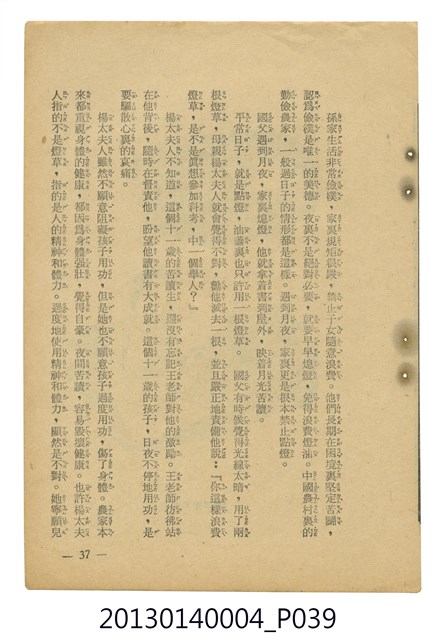 孫家生活非常儉樸，家裏規矩很嚴，禁止子女隨意浪費。他們長期在困境裏堅定苦鬭，
認爲儉樸是唯一的美德。夜裏不是絕對必要，就要早早熄燈，免得浪費燈油。中國農村裏的
勤儉農家，一般過日子的情形都是這樣。遇到月夜，家裏更是根本禁止點燈。
國父遇到月夜，家裏熄燈，他就拿着書到屋外，映着月光苦讀。
平常日子，就是點燈，油盞裏也只許用一根燈草。國父有時候覺得光線太暗，用了兩
根燈草，母親楊太夫人就會覺得不對，勸他減去一根，並且嚴正地責備他說：『你這樣浪費
燈草，是不是眞想參加科考，中一個舉人？』
楊太夫人不知道，這個十一歲的苦讀生，還沒有忘記王老師對他的激勵。王老師彷彿站
在他背後，隨時在督責他，盼望他讀書有大成就。這個十一歲的孩子，日夜不停地用功，是
要驅散心裏的哀痛。
楊太夫人雖然不願意阻礙孩子用功，但是她也不願意孩子過度用功，傷了身體。農家本
來都重視身體的健康，都因爲身體強壯，覺得自豪。夜間苦讀，容易毀壞健康。也許楊太夫
人指的不是燈草，指的是人的精神和體力。過度地使用精神和體力，顯然是不對。她寧願兒
— 37 —
20130140004_P039